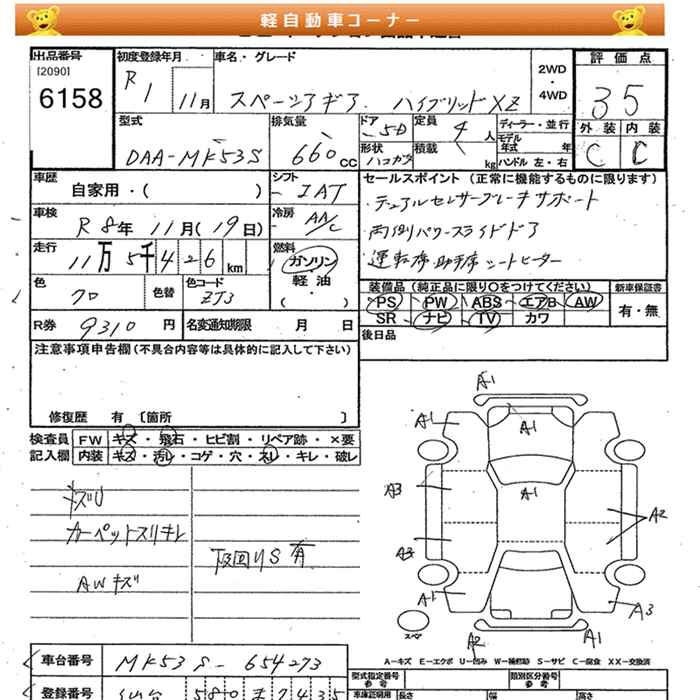 軽自動車コーナー
出品番号
[2090]
6158
初度登録年月
R 1 11月
車名・グレード
スペーシアギア ハイブリッドXZ
2WD
・
4WD
評価点
3.5
外装 内装
C C
型式
DAA-MK53S
排気量
660cc
ドア
5D
定員
4人
ディーラー・並行
モデル年式 年
形状
積載 kg
ハンドル 左・右
車歴
自家用・( )
シフト
IAT
セールスポイント (正常に機能するものに限ります)
デュアルセンサーブレーキサポート
両側パワースライドドア
運転席助手席シートヒーター
車検
R 8年 11月(19日)
冷房
AA/C
走行
11万5千426km
燃料
ガソリン
軽油
・( )
色
クロ
色替
色コード
ZJ3
装備品(純正品に限り○をつけてください)
PS PW ABS エアB AW
SR ナビ TV カワ
新車保証書
有・無
R券
9310円
名変通知期限 月 日
後日品
注意事項申告欄(不具合内容等は具体的に記入して下さい)
修復歴 有 [箇所 ]
検査員
記入欄
FW キズ・飛石・ヒビ割・リペア跡・×要
内装 キズ・汚レ・コゲ・穴・スレ・キレ・破レ
キズU
カーペットスリキレ
AWキズ
下回りS有
A-1
A-1
A-1
A-1
A3
A2
A3
A-1
A3
A2
A-1
スペア
A-キズ E-エクボ U-凹み W-補修跡 S-サビ C-腐食 XX-交換済
車台番号
MK53S-654273
登録番号
仙台 580
型式指定番号
参考
類別区分番号
参考
車庫証明用
長さ
幅
高さ